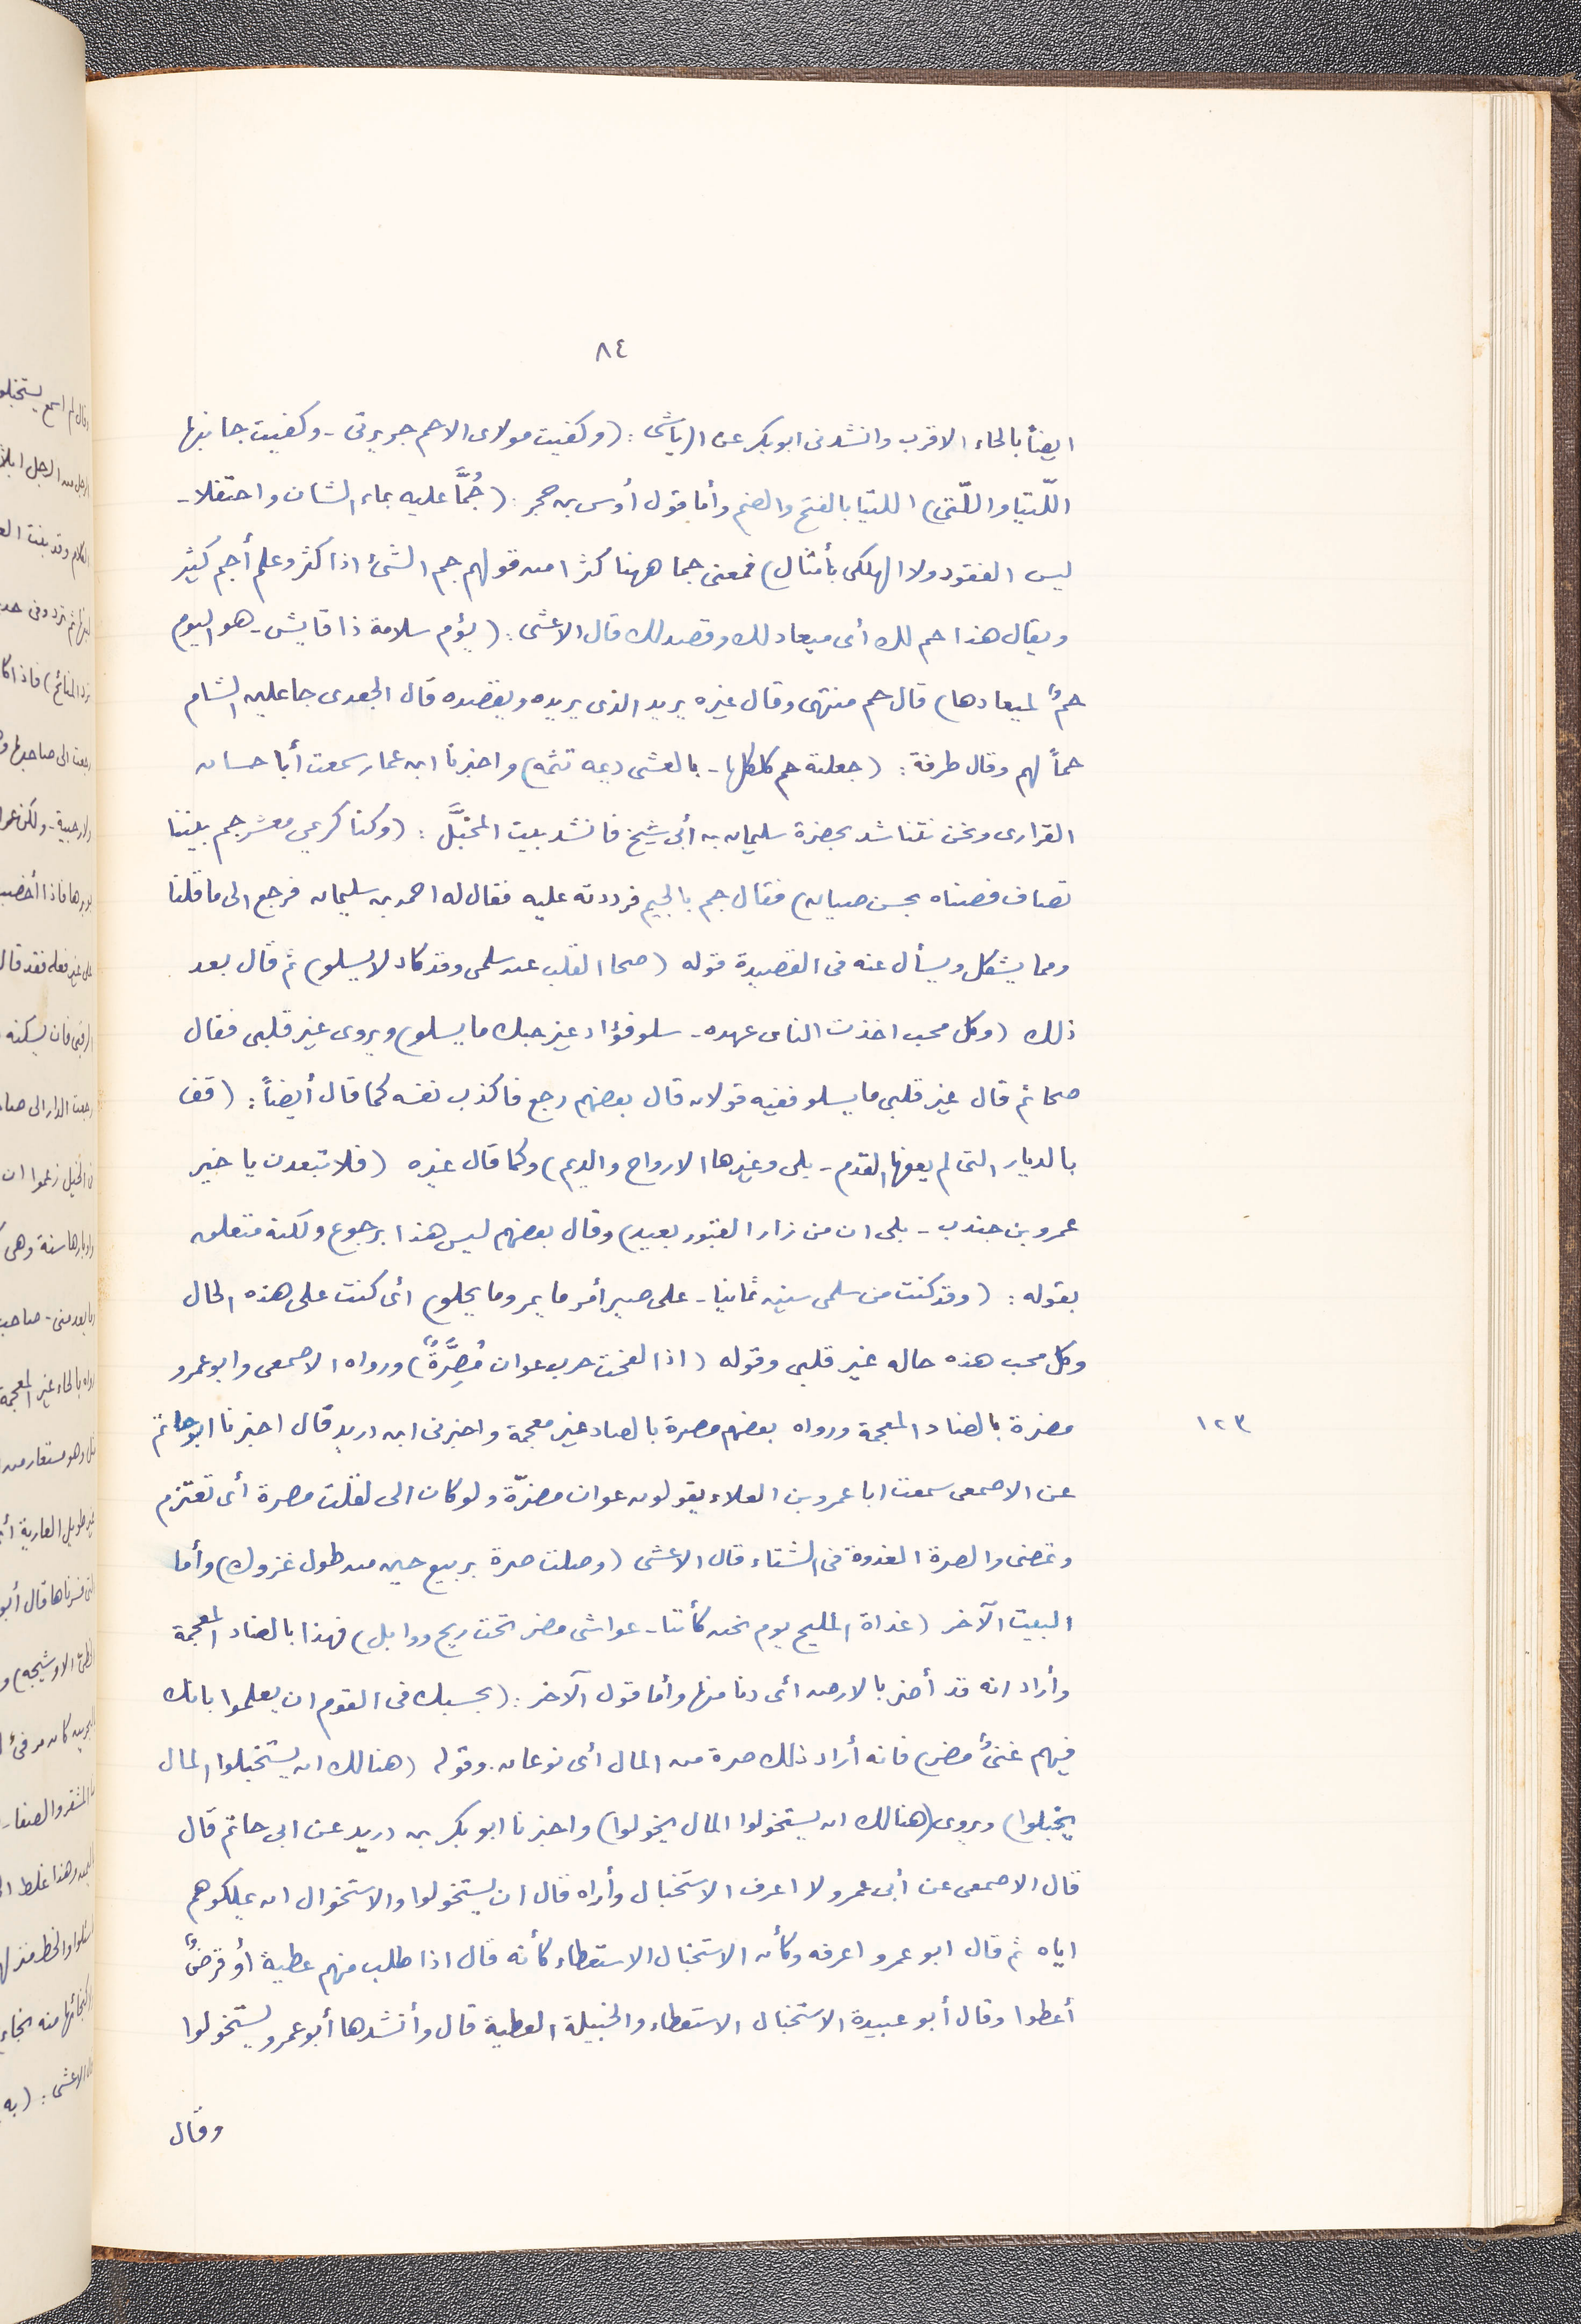 ٨٤
ايضاً بالحاء الاقرب وانشدنى ابو بكر عن الرياشى : (وكفيت مولاى الاحم جريرتى - وكفيت جانيها
اللّتيا واللّتى) اللتيا بالفتح والضم وأما قول أوس بن حجر : (جُمَّا عليه بماء الشان واحتفلا -
ليس الفقود ولا الهلكى بأمثال) فمعنى جما ههنا كثرا من قولهم جم الشئ اذا كثر وعلم أجم كثير
ويقال هذا حم لك أى ميعاد لك وقصد لك قال الاعشى : (يؤم سلامة ذا فايش - هو اليوم
حمٌ لميعادها) قال حم منتهى وقال غيره يريد الذى يريده ويقصده قال الجعدى جاعلين الشام
حماً لهم وقال طرفة : (جعلته حم كلكلها - بالعشى ديمه تثمه) واخبرنا ابن عمار سمعت أبا حسان
الفزارى ونحن نتناشد بحضرة سليمان بن أبى شيخ فانشد بيت المخبَّل : (وكنا كرعي معشر حم بيننا
تصاف فصناه بحسن صيان) فقال جم بالجيم فرددته عليه فقال له احمد بن سليمان فرجع الى ما قلنا
ومما يشكل ويسأل عنه فى القصيدة قوله (صحا القلب عن سلمى وقد كاد لا يسلو) ثم قال بعد
ذلك (وكل محب اخذت الناى عهده - سلو فؤاد غير حبك ما يسلو) ويروى غير قلبى فقال
صحا ثم قال غير قلبى ما يسلو ففيه قولان قال بعضهم رجع فاكذب نفسه كما قال أيضاً : (قف
بالديار التى لم يعفها القدم - بلى وغيرها الارواح والديم) وكما قال غيره (فلا تبعدن يا خير
عمرو بن جندب - بلى ان من زار القبور بعيد) وقال بعضهم ليس هذا برجوع ولكنه متعلق
بقوله : (وقد كنت من سلمى سنين ثمانيا - على صير أمر ما يمر وما يحلو) اى كنت على هذه الحال
وكل محب هذه حاله غير قلبى وقوله (اذا لقحت حرب عوان مُضِرَّةٌ) ورواه الاصمعى وابو عمرو
مضرة بالضاد المعجمة ورواه بعضهم مصرة بالصاد غير معجمة واخبرنى ابن دريد قال اخبرنا ابو حاتم
١٢٣
عن الاصمعى سمعت ابا عمرو بن العلاء يقولون عوان مضرّة ولو كان الى لقلت مصرة أى تعتزم
وتمضى والصرة الغدوة فى الشتاء قال الاعشى (وصلت صرة بربيع حين من طول غزوك) وأما
البيت الآخر (غداة المليح يوم نحن كأننا - عواشى مضر تحت ريح ووابل) فهذا بالضاد المعجمة
وأراد انه قد أضر بالارض اى دنا منها وأما قول الآخر : (بحسبك فى القوم ان يعلموا بانك
فيهم غنىٌ مضر) فانه أراد ذلك صرة من المال أى نوعان. وقوله (هنالك ان يستخبلوا المال
يخبلوا) ويروى (هنالك ان يستخولوا المال يخولوا) واخبرنا ابو بكر بن دريد عن ابى حاتم قال
قال الاصمعى عن أبى عمرو لا اعرف الاستخبال وأراه قال ان يستخولوا والاستخوال ان يملكوهم
اياه ثم قال ابو عمرو اعرفه وكأن الاستخبال الاستعطاء كأنه قال اذا طلب منهم عطية أو قرضٌ
أعطوا وقال أبو عبيدة الاستخبال الاستعطاء والخبيلة العطية قال وأنشدها أبو عمرو يستخولوا
وقال